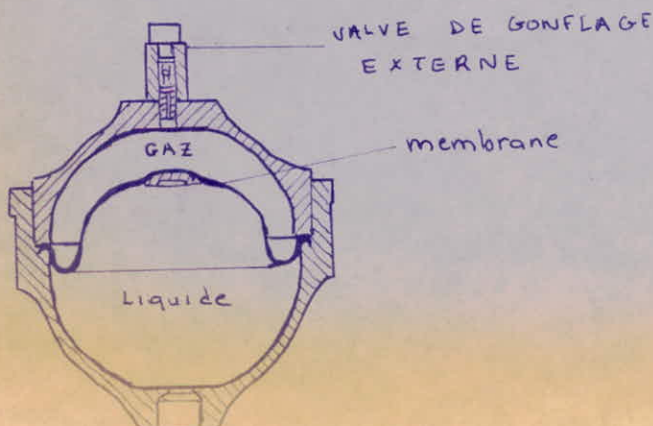 VALVE DE GONFLAGE
EXTERNE
GAZ
membrane
Liquide